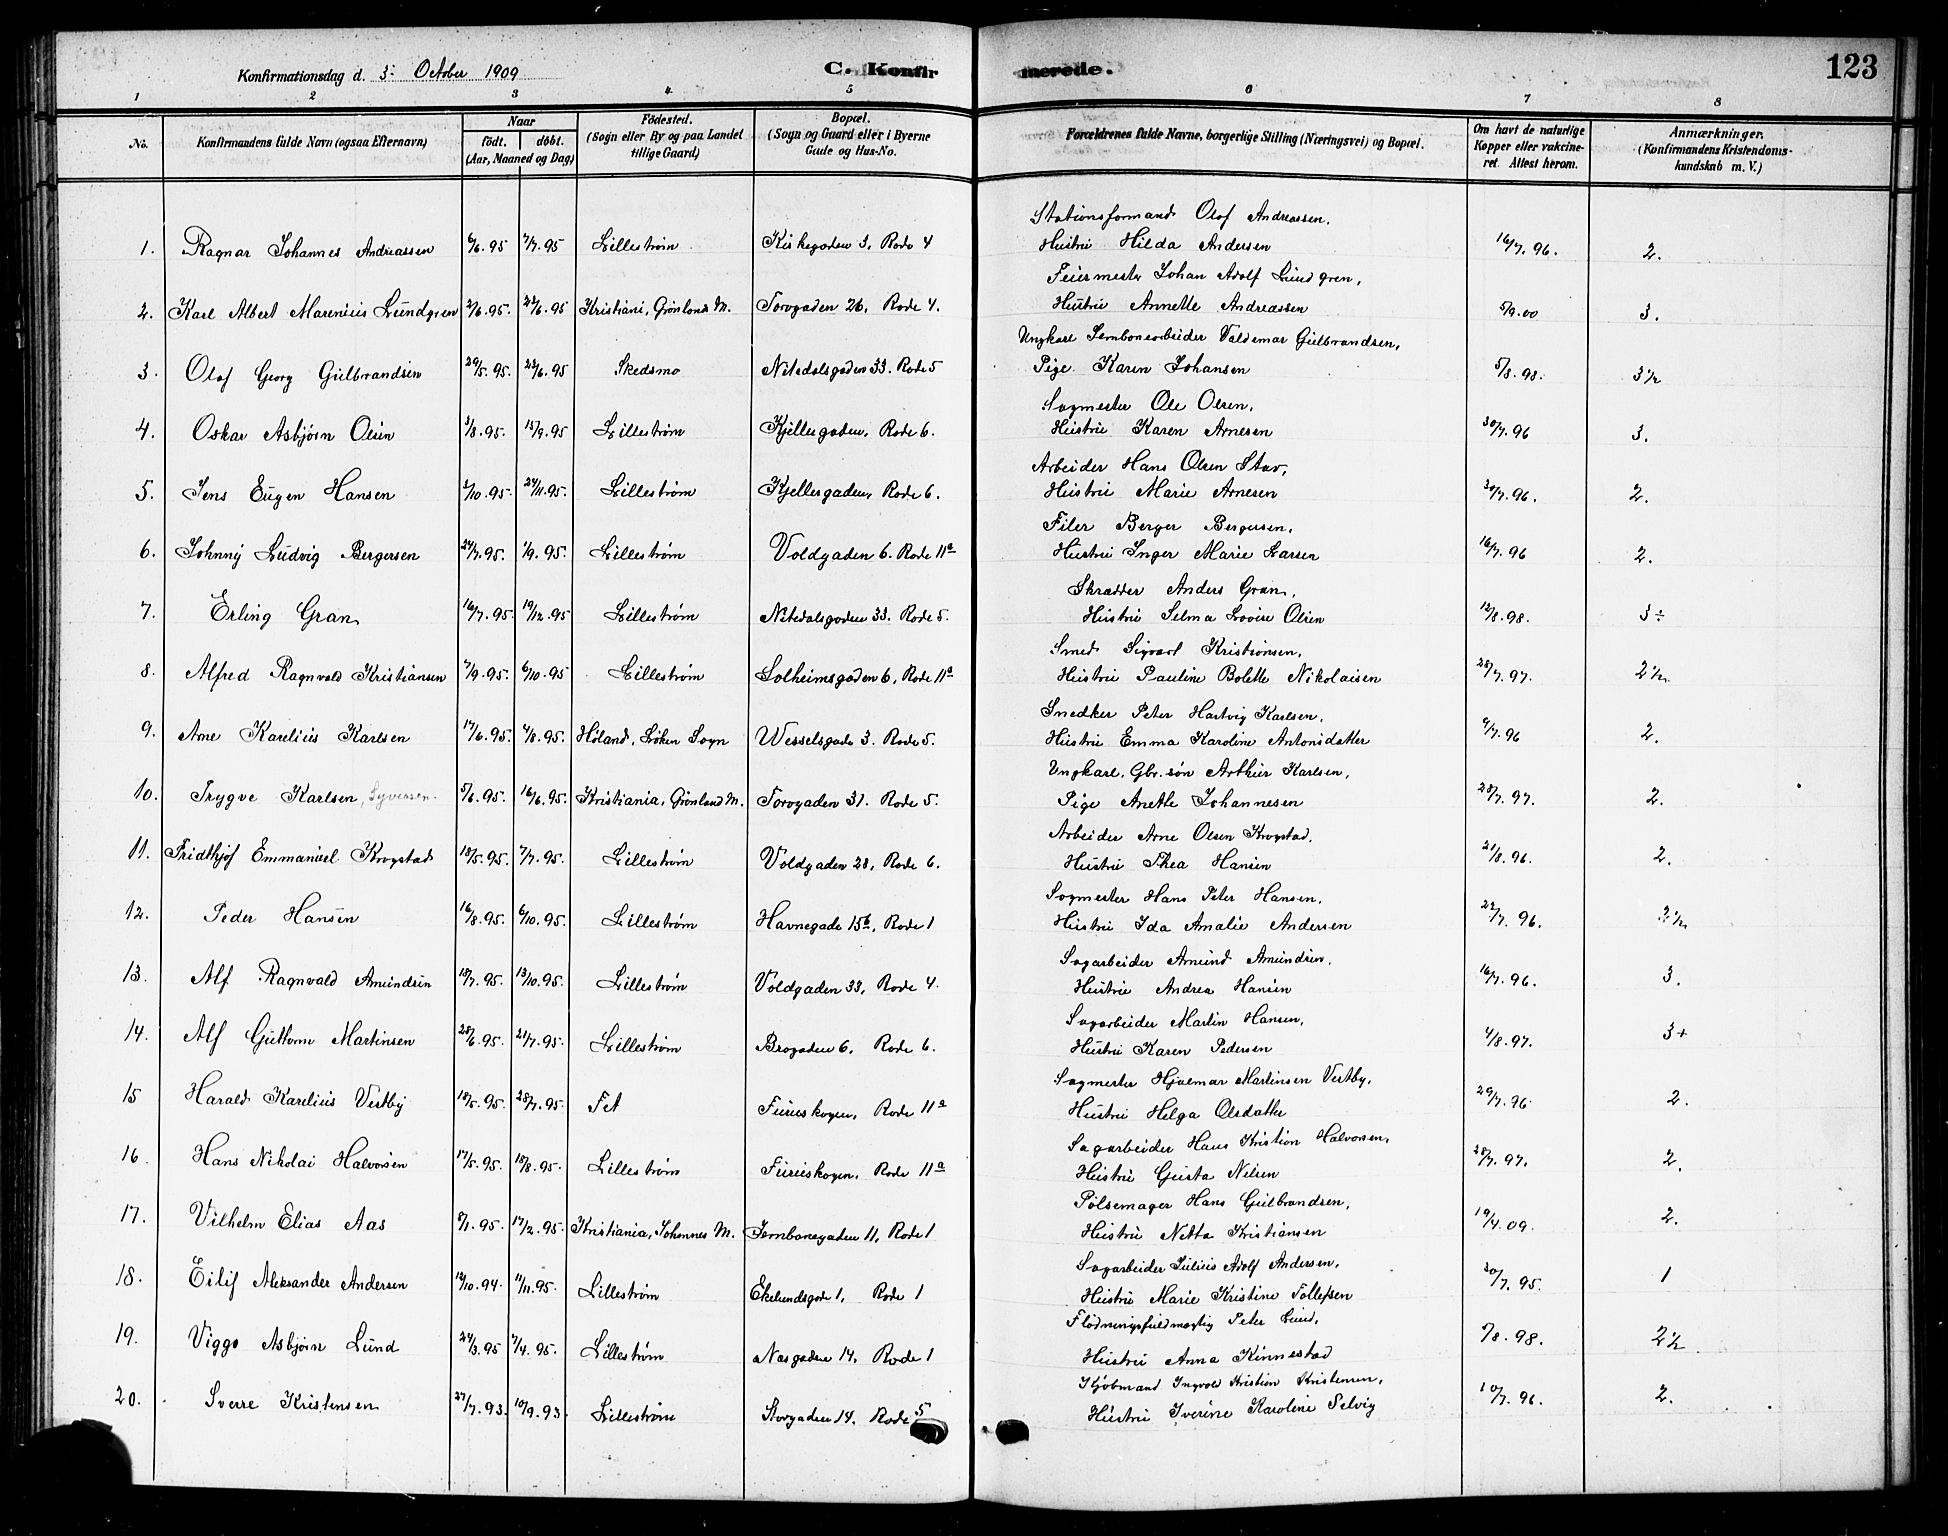 Konfirmationsdag d. 3. October 1909
C. Konfirmerede.
123
1 2 3 4. 5 6 7 8
No. Konfirmandens fulde Navn (ogsaa Efternavn) Naar født. døbt. (Aar, Maaned og Dag) Fødested. (Sogn eller By og paa Landet tillige Gaard) Bopæl. (Sogn og Gaard eller i Byerne Gade og Hus-No. Forældrenes fulde Navne, borgerlige Stilling (Næringsvei) og Bopæl. Om havt de naturlige Kopper eller vakcineret. Attest herom. Anmærkninger. (Konfirmandens Kristendomskundskab m. V.)
Stationsformand Olaf Andreassen,
1. Ragnar Johannes Andreassen 6/6.95 7/7.95 Lillestrøm Kirkegaden 3, Rode 4 Hustru Hilda Andersen 16/7.96. 2.
Feiermester Johan Adolf Lundgren,
2. Karl Albert Marenius Lundgren 2/6.95. 23/6.95 Kristiani, Grønlands M. Torvgaden 26, Rode 4. Hustru Annette Andreassen 5/9.00 3.
Ungkarl Jernbanearbeider Valdemar Gulbrandsen,
3. Olaf Georg Gulbrandsen 29/5.95. 23/6.95 Skedsmo Nitedalsgaden 33. Rode 5 Pige Karen Johansen 5/8.98. 3 1/2
Sagmester Ole Olsen,
4. Oskar Asbjørn Olsen 3/8.95. 15/9.95 Lillestrøm Kjellergaden, Rode 6. Hustru Karen Arnesen 30/7.96 3.
Arbeider Hans Olsen Stav,
5. Jens Eugen Hansen 2/10.95. 24/11.95. Lillestrøm Kjellergaden, Rode 6. Hustru Marie Arnesen 30/7.96. 2.
Filer Berger Bergersen,
6. Johnny Ludvig Bergersen 24/7.95. 1/9.95. Lillestrøm Voldgaden 6. Rode 11a Hustru Inger Marie Larsen 16/7.96 2.
Skrædder Anders Gran,
7. Erling Gran 16/7.95. 19/12.95 Lillestrøm Nitedalsgaden 33. Rode 5. Hustru Selma Lovise Olsen 12/8.98. 3÷
Smed Sigvart Kristiansen,
8. Alfred Ragnvald Kristiansen 7/9.95. 6/10.95 Lillestrøm Solheimsgaden 6, Rode 11a Hustru Pauline Bolette Nikolaisen 28/7.97. 2 1/2.
Snedker Peter Hartvig Karlsen,
9. Arne Karelius Karlsen 17/6.95. 4/8.95. Høland, Løken Sogn Wesselsgade 3. Rode 5. Hustru Emma Karoline Antonsdatter 9/7.96 2.
Ungkarl, Gbr. søn Arthur Karlsen,
10. Trygve Karlsen, Syversen. 5/6.95. 16/6.95. Kristiania, Grønland M. Torvgaden 31. Rode 5. Pige Anette Johannesen 28/7.97. 2.
Arbeider Arne Olsen Krogstad,
11. Fridthjof Emmanuel Krogstad 18/5.95. 7/7.95. Lillestrøm Voldgaden 28, Rode 6. Hustru Thea Hansen 21/8.96. 2.
Sagmester Hans Peter Hansen,
12. Peder Hansen 16/8.95. 6/10.95. Lillestrøm Havnegade 15b, Rode 1 Hustru Ida Amalie Andersen 22/7.96. 2 1/2
Sagarbeider Amund Amundsen,
13. Alf Ragnvald Amundsen 18/7.95. 13/10.95. Lillestrøm Voldgaden 33, Rode 4. Hustru Andrea Hansen 16/7.96. 3.
Sagarbeider Martin Hansen,
14. Alf Guttorm Martinsen 28/6.95. 21/7.95. Lillestrøm Brogaden 6, Rode 6. Hustru Karen Pedersen 4/8.97. 3+
Sagmester Hjalmar Martinsen Vestby,
15 Harald Karelius Vestby 18/5.95. 28/7.95. Fet Furuskogen, Rode 11a Hustru Helga Olsdatter 29/7.96. 2.
Sagarbeider Hans Kristian Halvorsen,
16. Hans Nikolai Halvorsen 17/5.95. 18/8.95. Lillestrøm Furuskogen, Rode 11a Hustru Gusta Nelsen 28/7.97. 2.
Pølsemager Hans Gulbrandsen,
17. Vilhelm Elias Aas 8/1.95. 17/2.95. Kristiania, Johannes M. Jernbanegaden 11, Rode 1 Hustru Netta Kristiansen 19/4.09. 2.
Sagarbeider Julius Adolf Andersen,
18. Eilif Aleksander Andersen 12/10.94. 11/11.95. Lillestrøm Ekelundsgade 1, Rode 1 Hustru Marie Kristine Tollefsen 30/7.95. 1
Flødningsfuldmægtig Peter Lund,
19. Viggo Asbjørn Lund 24/3.95 7/4.95. Lillestrøm Næsgaden 14, Rode 1 Hustru Anna Kinnestad 5/8.98. 2 1/2
Kjøbmand Ingvald Kristian Kristensen,
20. Sverre Kristensen 27/7.93. 10/9.93. Lillestrøm Storgaden 14. Rode 5 Hustru Iverine Karoline Selvig 10/7.96. 2.